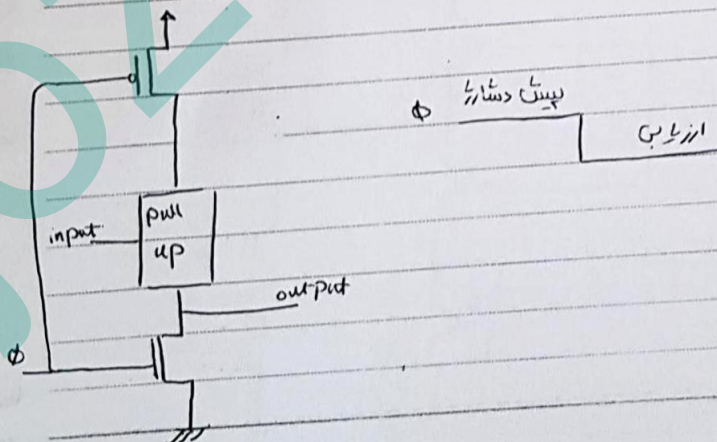 ϕ پیش دشارژ
ارزیابی
input
pull
up
output
ϕ